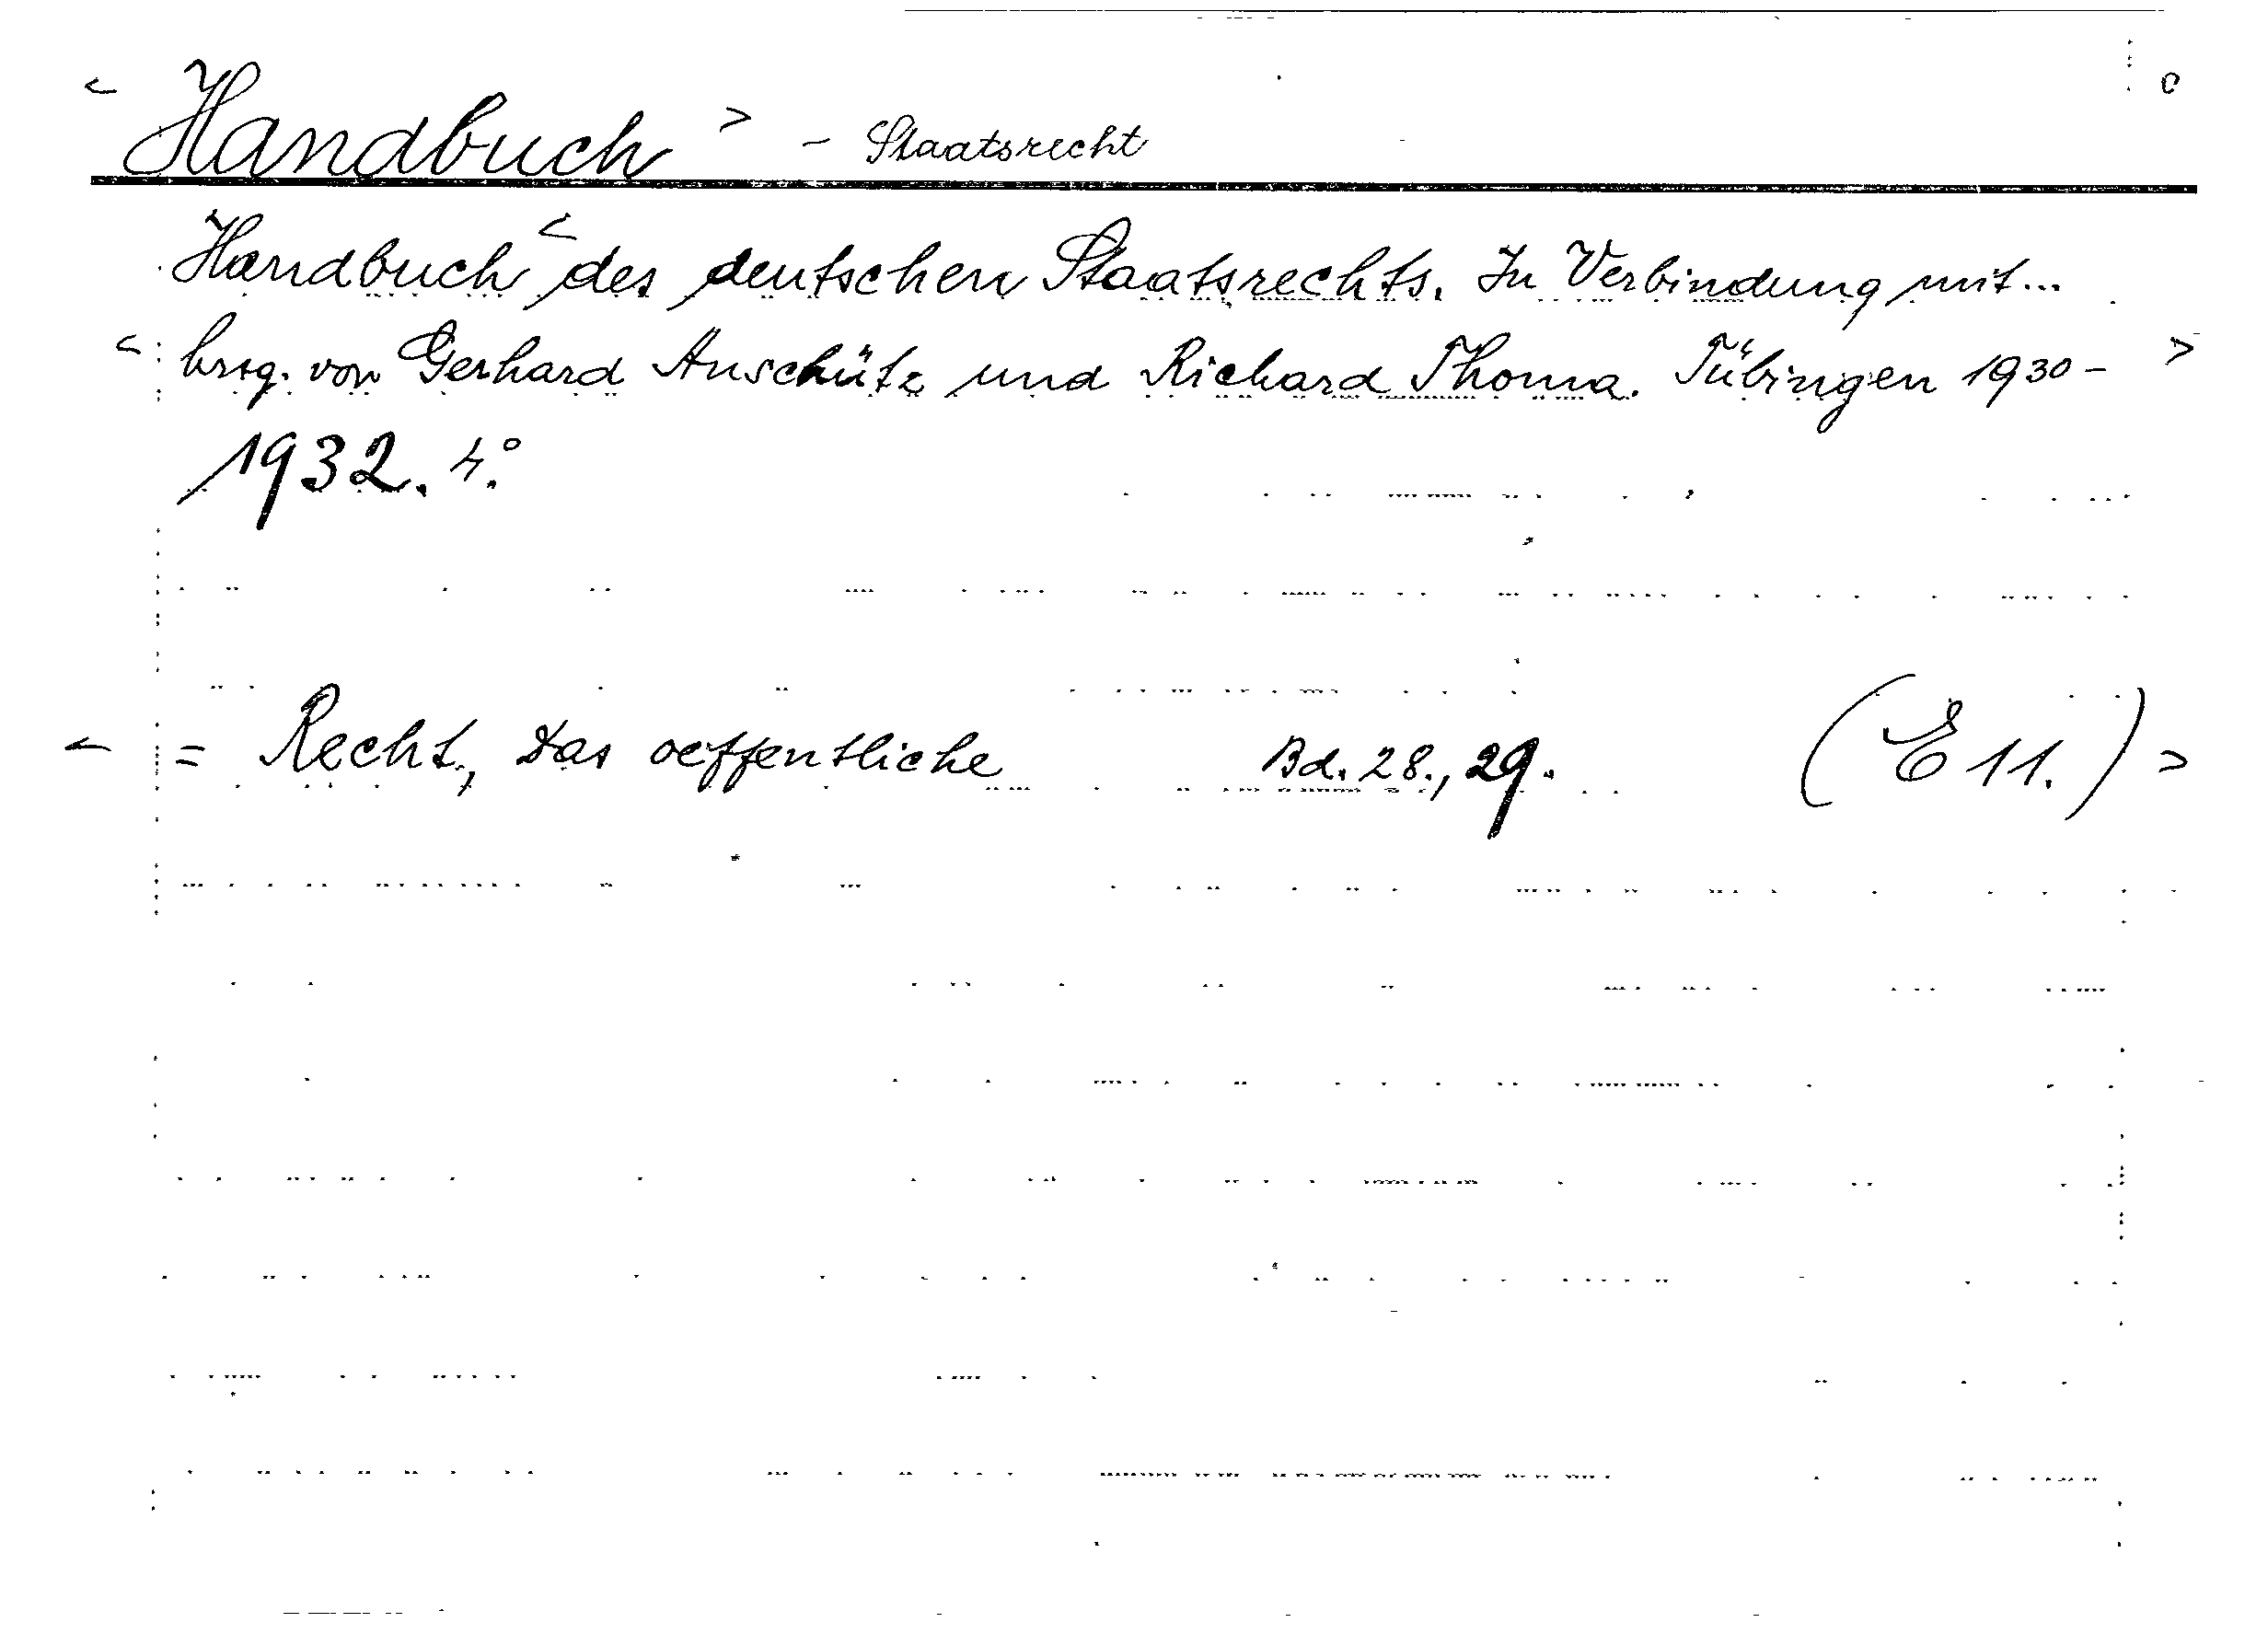 < Handbuch > - Staatsrecht
Handbuch < des deutschen Staatsrechts. In Verbindung mit...
< hrsg. von Gerhard Anschütz und Richard Thoma. Tübingen 1930- >
1932. 4°.
< = Recht, Das oeffentliche Bd. 28., 29. (E 11.) >